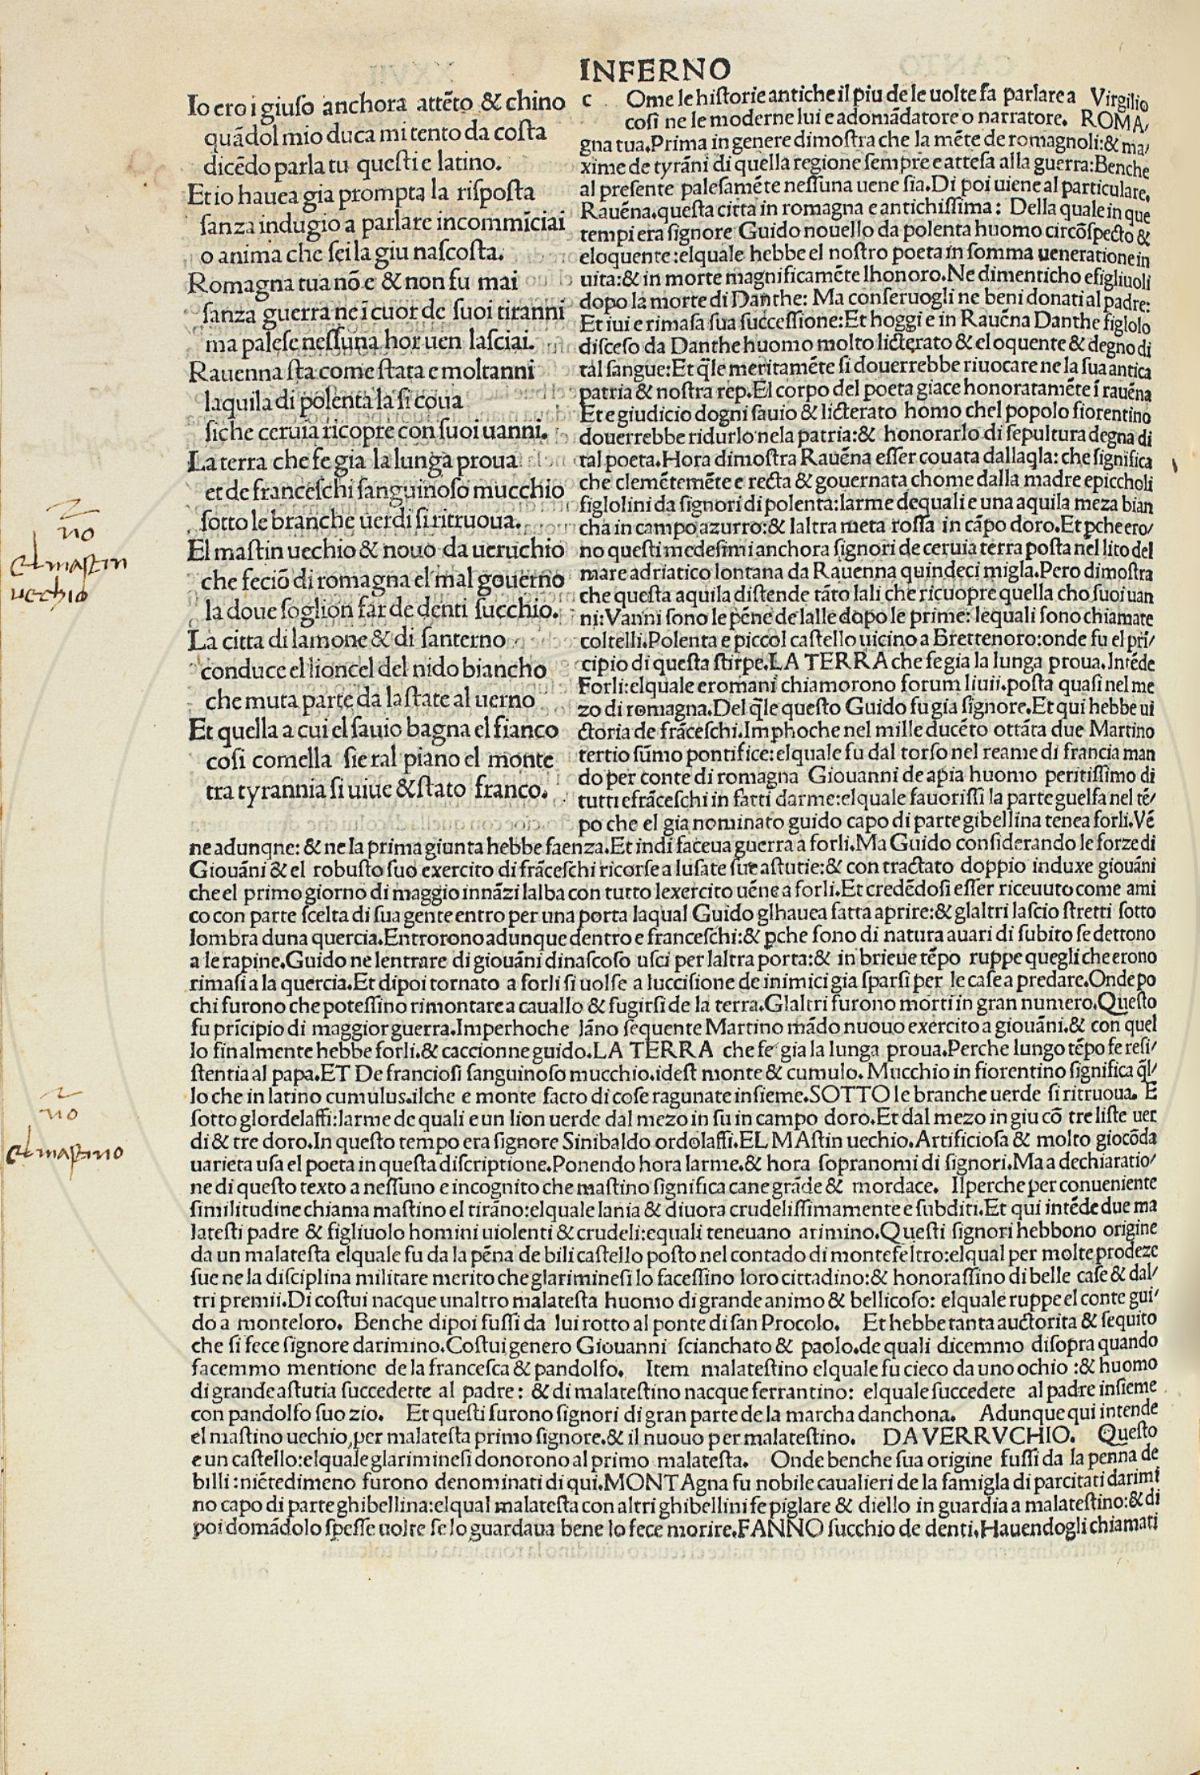 INFERNO
Io ero i giuso anchora attēto & chino
quādol mio duca mi tento da costa
dicēdo parla tu questi e latino.
Et io hauea gia prompta la risposta
sanza indugio a parlare incommīciai
o anima che sei la giu nascosta.
Romagna tua nō e & non fu mai
sanza guerra ne ī cuor de suoi tiranni
ma palese nessuna hor uen lasciai.
Rauenna sta come stata e moltanni
laquila di polenta la si coua
si che ceruia ricopre con suoi uanni.
La terra che fe gia la lunga proua
et de franceschi sanguinoso mucchio
sotto le branche uerdi si ritruoua.
El mastin uechio & nouo da ueruchio
che feciō di romagna el mal gouerno
la doue soglion far de denti succhio.
La citta di lamone & di santerno
conduce el lioncel del nido biancho
che muta parte da la state al uerno
Et quella a cui el sauio bagna el fianco
cosi comella sie ral piano el monte
tra tyrannia si uiue & stato franco.
c Ome le historie antiche il piu de le uolte fa parlare a Virgilio
cosi ne le moderne lui e adomādatore o narratore. ROMA/
gna tua. Prima in genere dimostra che la mēte de romagnoli: & ma/
xime de tyrāni di quella regione sempre e attesa alla guerra: Benche
al presente palesamēte nessuna uene sia. Di poi uiene al particulare,
Rauēna. questa citta in romagna e antichissima: Della quale in que
tempi era signore Guido nouello da polenta huomo circōspecto &
eloquente: elquale hebbe el nostro poeta in somma ueneratione in
uita: & in morte magnificamēte lhonoro. Ne dimenticho e figliuoli
dopo la morte di Danthe: Ma conseruogli ne beni donati al padre:
Et iui e rimasa sua successione: Et hoggi e in Rauēna Danthe figlolo
disceso da Danthe huomo molto licterato & eloquente & degno di
tal sangue: Et q̄le meritamēte si douerrebbe riuocare ne la sua antica
patria & nostra rep. El corpo del poeta giace honoratamēte ī rauēna
Et e giudicio dogni sauio & licterato homo chel popolo fiorentino
douerrebbe ridurlo nela patria: & honorarlo di sepultura degna di
tal poeta. Hora dimostra Rauēna esser couata dallaq̄la: che significa
che clemētemēte e recta & gouernata chome dalla madre epiccholi
figlolini da signori di polenta: larme dequali e una aquila meza bian
cha in campo azurro: & laltra meta rossa in cāpo doro. Et ꝑche ero/
no questi medesimi anchora signori de ceruia terra posta nel lito del
mare adriatico lontana da Rauenna quindeci migla. Pero dimostra
che questa aquila distende tāto lali che ricuopre quella cho suoi uan
ni: Vanni sono le pēne de lalle dopo le prime: lequali sono chiamate
coltelli. Polenta e piccol castello uicino a Brettenoro: onde fu el prī/
cipio di questa stirpe. LA TERRA che fe gia la lunga proua. Intēde
Forli: elquale e romani chiamorono forum liuii. posta quasi nel me
zo di romagna. Del q̄le questo Guido fu gia signore. Et qui hebbe ui
ctoria de frāceschi. Imphoche nel mille ducēto ottāta due Martino
tertio sūmo pontifice: elquale fu dal torso nel reame di francia man
do per conte di romagna Giouanni de apia huomo peritissimo di
tutti e frāceschi in fatti darme: elquale fauorissi la parte guelfa nel tē/
po che el gia nominato guido capo di parte gibellina tenea forli. Vē
ne adunqne: & ne la prima giunta hebbe faenza. Et indi faceua guerra a forli. Ma Guido considerando le forze di
Giouāni & el robusto suo exercito di frāceschi ricorse a lusate sue astutie: & con tractato doppio induxe giouāni
che el primo giorno di maggio innāzi lalba con tutto lexercito uēne a forli. Et credēdosi esser riceuuto come ami
co con parte scelta di sua gente entro per una porta laqual Guido glhauea fatta aprire: & glaltri lascio stretti sotto
lombra duna quercia. Entrorono adunque dentro e franceschi: & ꝑche sono di natura auari di subito se dettono
a le rapine. Guido ne lentrare di giouāni di nascoso usci per laltra porta: & in brieue tēpo ruppe quegli che erono
rimasi a la quercia. Et dipoi tornato a forli si uolse a luccisione de inimici gia sparsi per le case a predare. Onde po
chi furono che potessino rimontare a cauallo & fugirsi de la terra. Glaltri furono morti in gran numero. Questo
fu prīcipio di maggior guerra. Imperhoche lāno sequente Martino mādo nuouo exercito a giouāni. & con quel
lo finalmente hebbe forli. & caccionne guido. LA TERRA che fe gia la lunga proua. Perche lungo tēpo fe resi/
stentia al papa. ET De franciosi sanguinoso mucchio. idest monte & cumulo. Mucchio in fiorentino significa q̄l/
lo che in latino cumulus. ilche e monte facto di cose ragunate insieme. SOTTO le branche uerde si ritruoua. E
sotto glordelaffi: larme de quali e un lion uerde dal mezo in su in campo doro. Et dal mezo in giu cō tre liste uer
di & tre doro. In questo tempo era signore Sinibaldo ordolaffi. EL MAstin uechio. Artificiosa & molto giocōda
uarieta usa el poeta in questa discriptione. Ponendo hora larme. & hora sopranomi di signori. Ma a dechiaratio/
ne di questo texto a nessuno e incognito che mastino significa cane grāde & mordace. Ilperche per conueniente
similitudine chiama mastino el tirāno: elquale lania & diuora crudelissimamente e subditi. Et qui intēde due ma
latesti padre & figliuolo homini uiolenti & crudeli: equali teneuano arimino. Questi signori hebbono origine
da un malatesta elquale fu da la pēna de bili castello posto nel contado di montefeltro: elqual per molte prodeze
sue ne la disciplina militare merito che glariminesi lo facessino loro cittadino: & honorassino di belle case & dal/
tri premii. Di costui nacque unaltro malatesta huomo di grande animo & bellicoso: elquale ruppe el conte gui/
do a monteloro. Benche dipoi fussi da lui rotto al ponte di san Procolo. Et hebbe tanta auctorita & sequito
che si fece signore darimino. Costui genero Giouanni scianchato & paolo. de quali dicemmo disopra quando
facemmo mentione de la francesca & pandolfo. Item malatestino elquale fu cieco da uno ochio: & huomo
di grande astutia succedette al padre: & di malatestino nacque ferrantino: elquale succedete al padre insieme
con pandolfo suo zio. Et questi furono signori di gran parte de la marcha danchona. Adunque qui intende
el mastino uechio, per malatesta primo signore. & il nuouo per malatestino. DA VERRVCHIO. Questo
e un castello: elquale glariminesi donorono al primo malatesta. Onde benche sua origine fussi da la penna de
billi: niētedimeno furono denominati di qui. MONTAgna fu nobile caualieri de la famigla di parcitati darimi
no capo di parte ghibellina: elqual malatesta con altri ghibellini fe piglare & diello in guardia a malatestino: & di
poi domādolo spesse uolte se lo guardaua bene lo fece morire. FANNO succhio de denti. Hauendogli chiamati
no
el mastin
uechio
no
el mastino